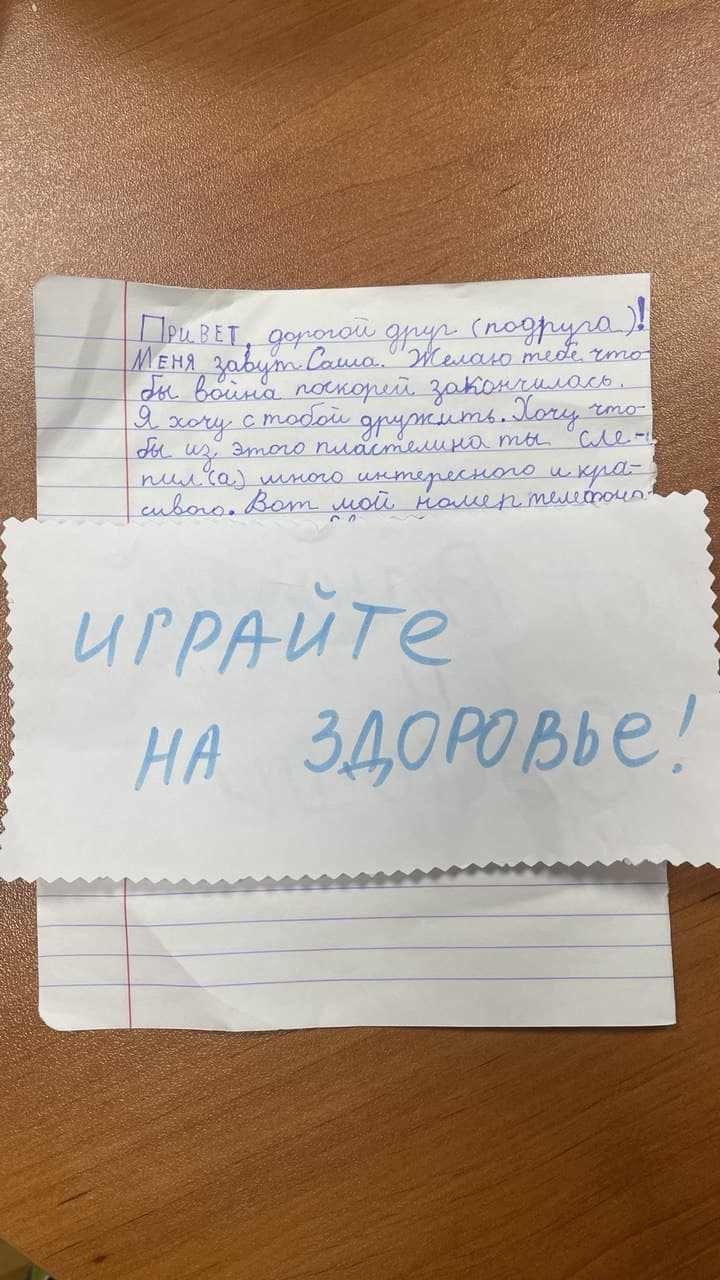 Привет, дорогой друг (подруга)!
Меня завут Саша. Желаю тебе что-
бы война поскорей закончилась.
Я хочу с тобой дружить. Хочу что-
бы из этого пластелина ты сле-
пил(а) много интересного и кра-
сивого. Вот мой номер телефона-
ИГРАЙТЕ
НА ЗДОРОВЬЕ!